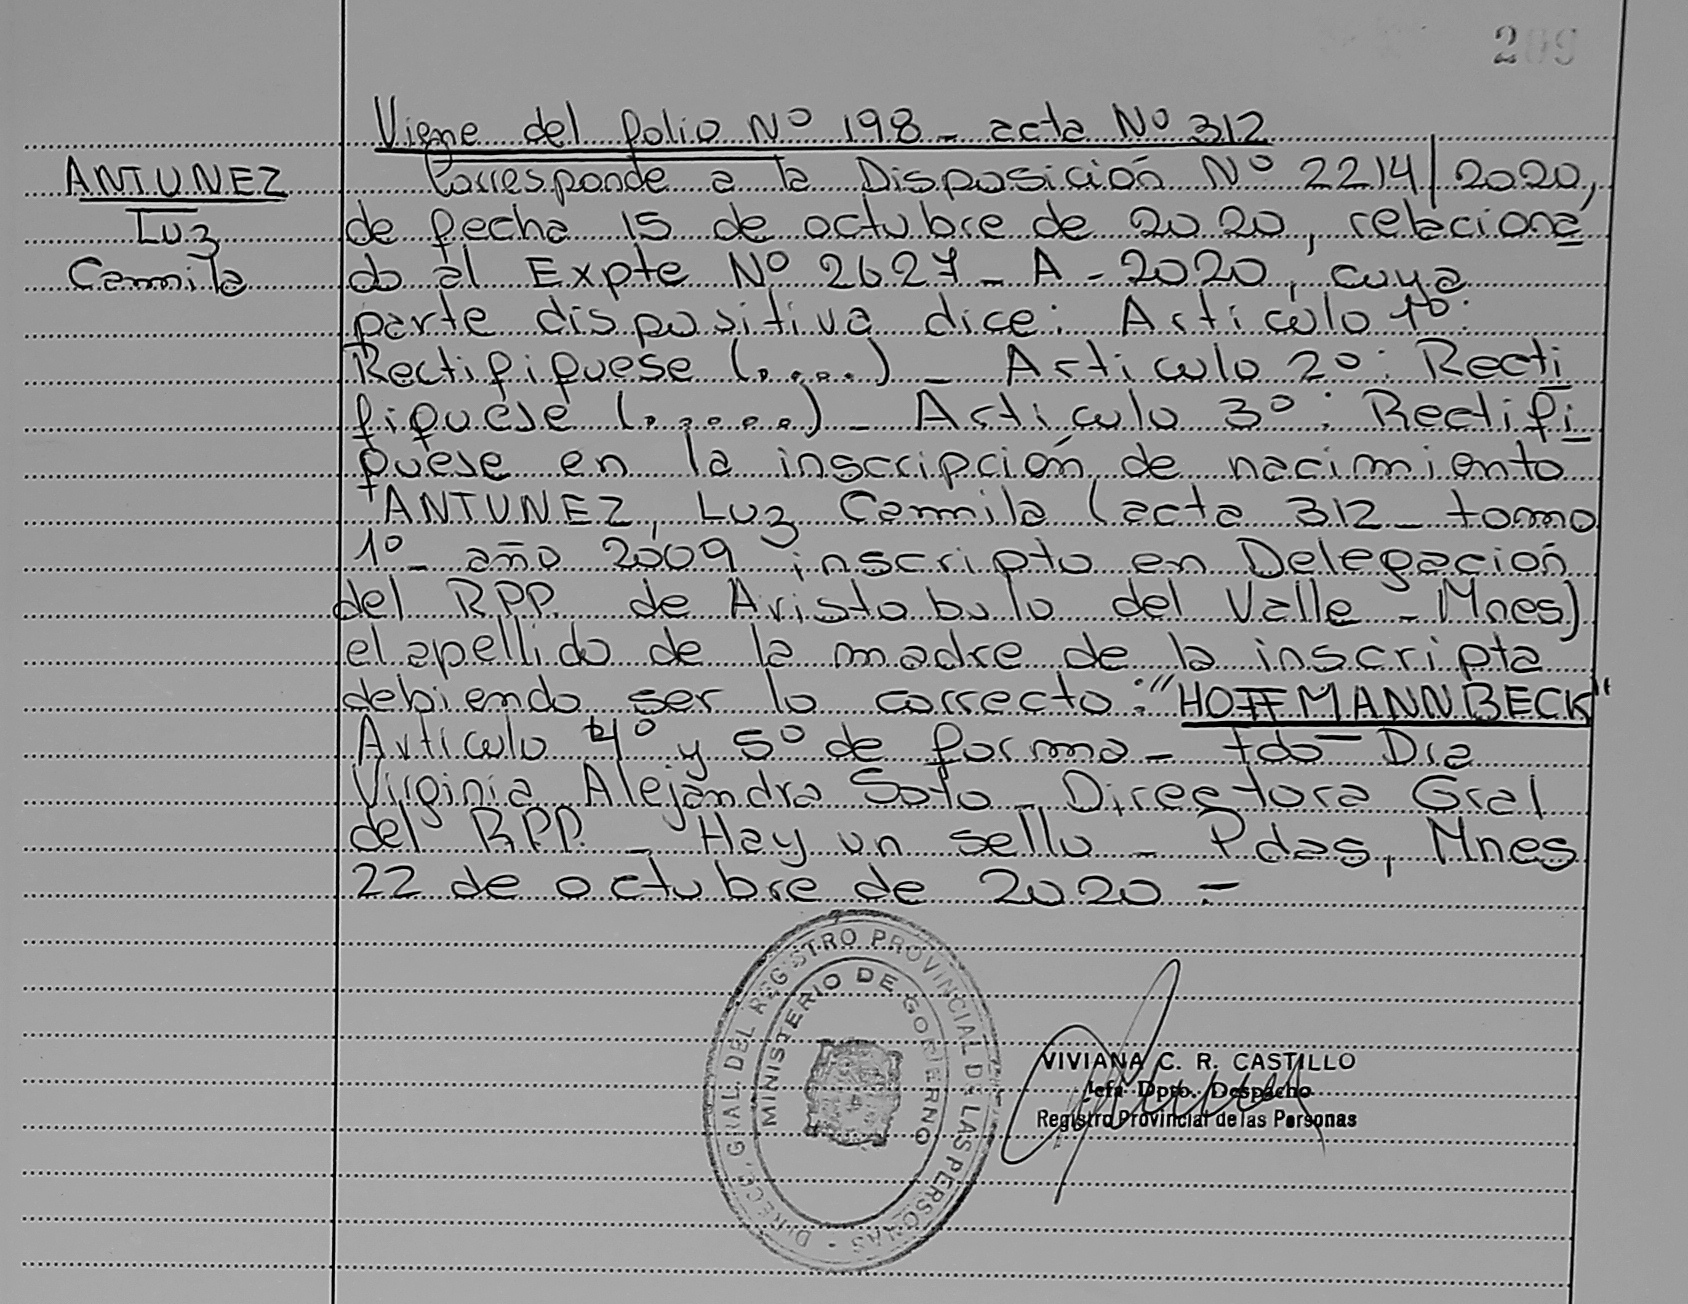 209
Viene del folio Nº 198 - acta Nº 312
ANTUNEZ
Luz
Camila
Corresponde a la Disposición Nº 2214/2020,
de fecha 15 de octubre de 2020, relaciona
do al Expte Nº 2627 - A - 2020, cuya
parte dispositiva dice: Artículo 1º:
Rectifiquese (.....) - Artículo 2º: Recti
fiquese (......) - Artículo 3º: Rectifi
quese en la inscripción de nacimiento
"ANTUNEZ, Luz Camila (acta 312 - tomo
1º - año 2009 inscripto en Delegación
del RPP. de Aristobulo del Valle - Mnes)
el apellido de la madre de la inscripta
debiendo ser lo correcto: "HOFFMANNBECK"
Artículo 4º y 5º de forma - fdo - Dra
Virginia Alejandra Soto - Directora Gral
del RPP. - Hay un sello - Pdas, Mnes
22 de octubre de 2020 -
DIREC. GRAL. DEL REGISTRO PROVINCIAL DE LAS PERSONAS -
MINISTERIO DE GOBIERNO
VIVIANA C. R. CASTILLO
Jefa Dpto. Despacho
Registro Provincial de las Personas